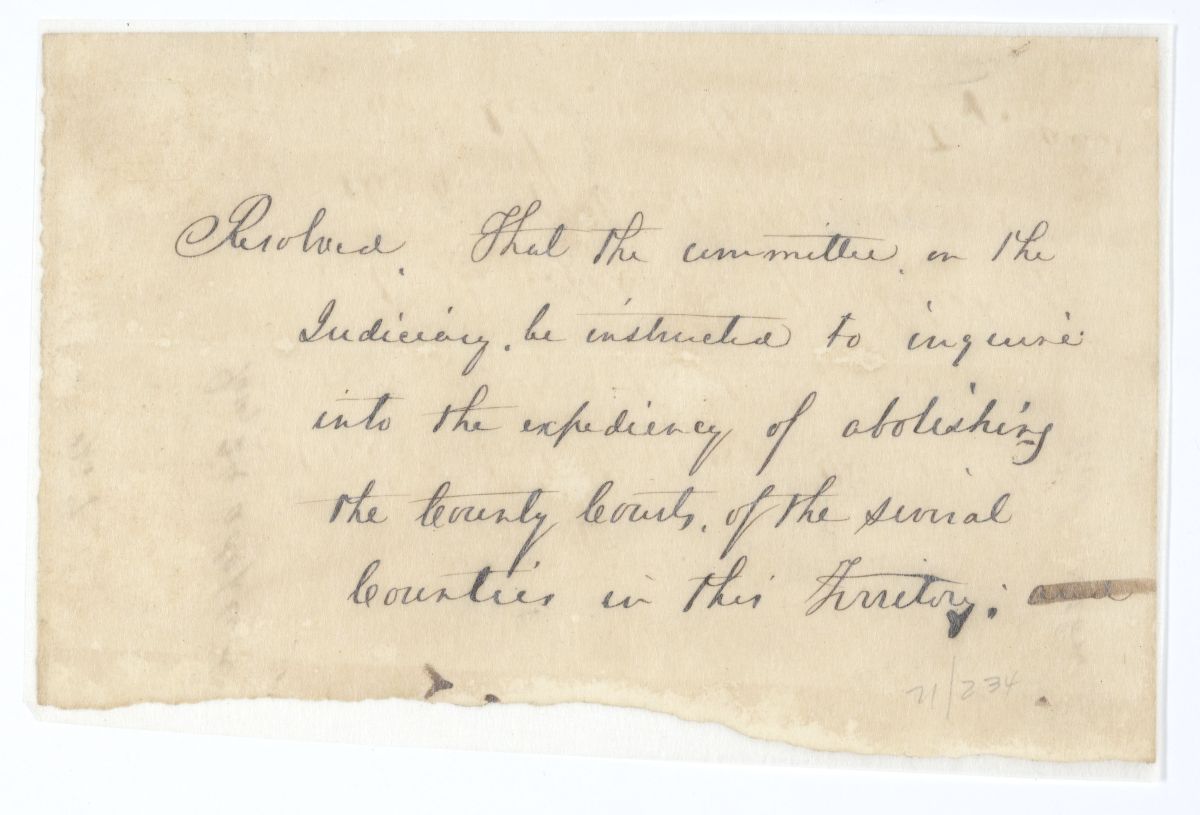 Resolved, That the committee, on the
Judiciary, be instructed to inquire
into the expediency of abolishing
the County Courts, of the several
Counties in this Territory; and
71/234